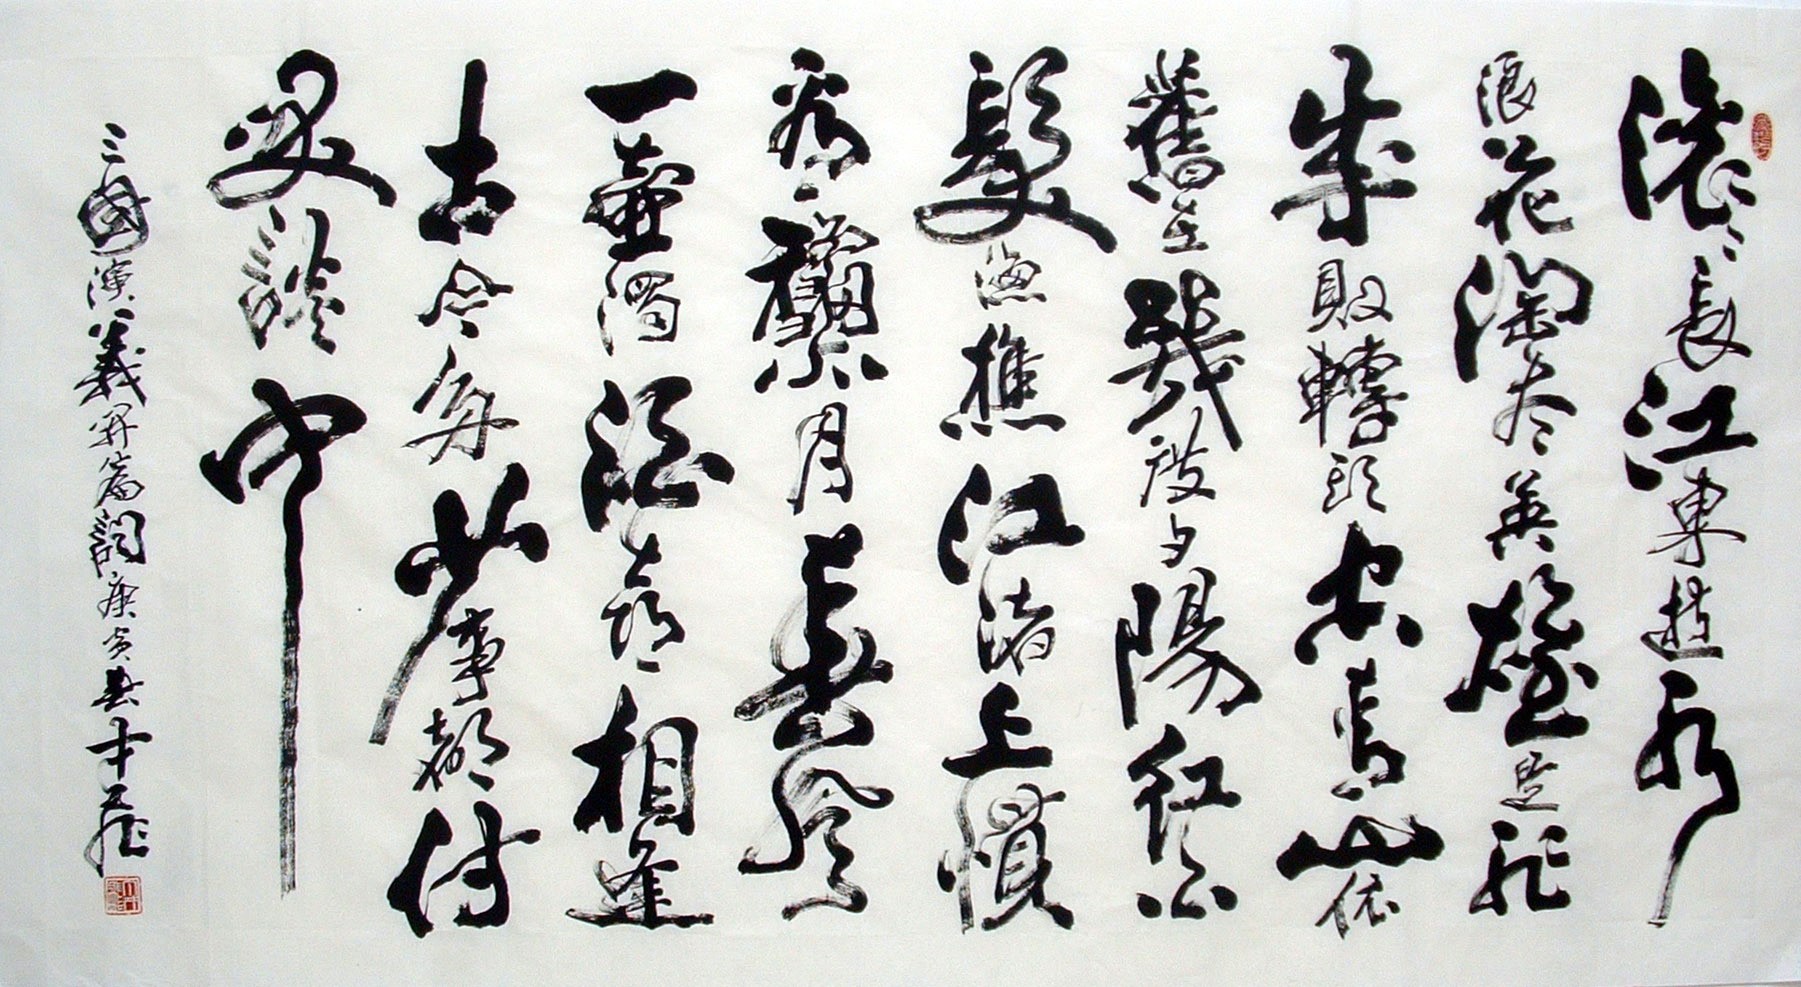 滚滚長江東逝水
浪花淘尽英雄是非
成敗轉頭空青山依
舊在幾度夕陽紅白
髮漁樵江渚上慣
看龝月春風
一壺濁酒喜相逢
古今多少事都付
笑談中
三國演義开篇詞庚寅